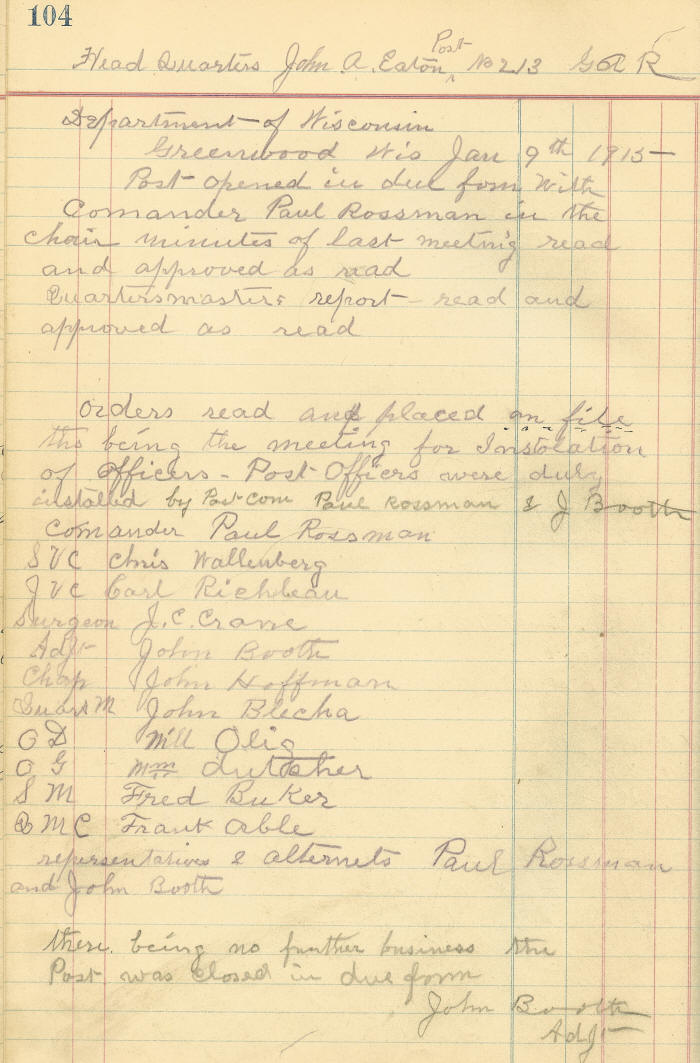 104
Head Quarters John A. Eaton Post No 213 G A R
Department of Wisconsin
Greenwood Wis Jan 9th 1915
Post opened in due form With
Comander Paul Rossman in the
chair minutes of last meeting read
and approved as read
Quartersmasters report read and
approved as read
orders read and placed on file
ths being the meeting for Instolation
of officers - Post Officers were duly
installed by Post Com Paul Rossman & J Booth
Comander Paul Rossman
S V C Chris Wallenberg
J V C Carl Richbeau
Surgeon J. C. Crane
Adjt John Booth
Chap John Hoffman
Quart M John Blecha
O D Will Olig
O G Wm dutcher
S M Fred Buker
Q M C Frank able
representatives & alternets Paul Rossman
and John Booth
there being no further business the
Post was closed in due form
John Booth
Adjt